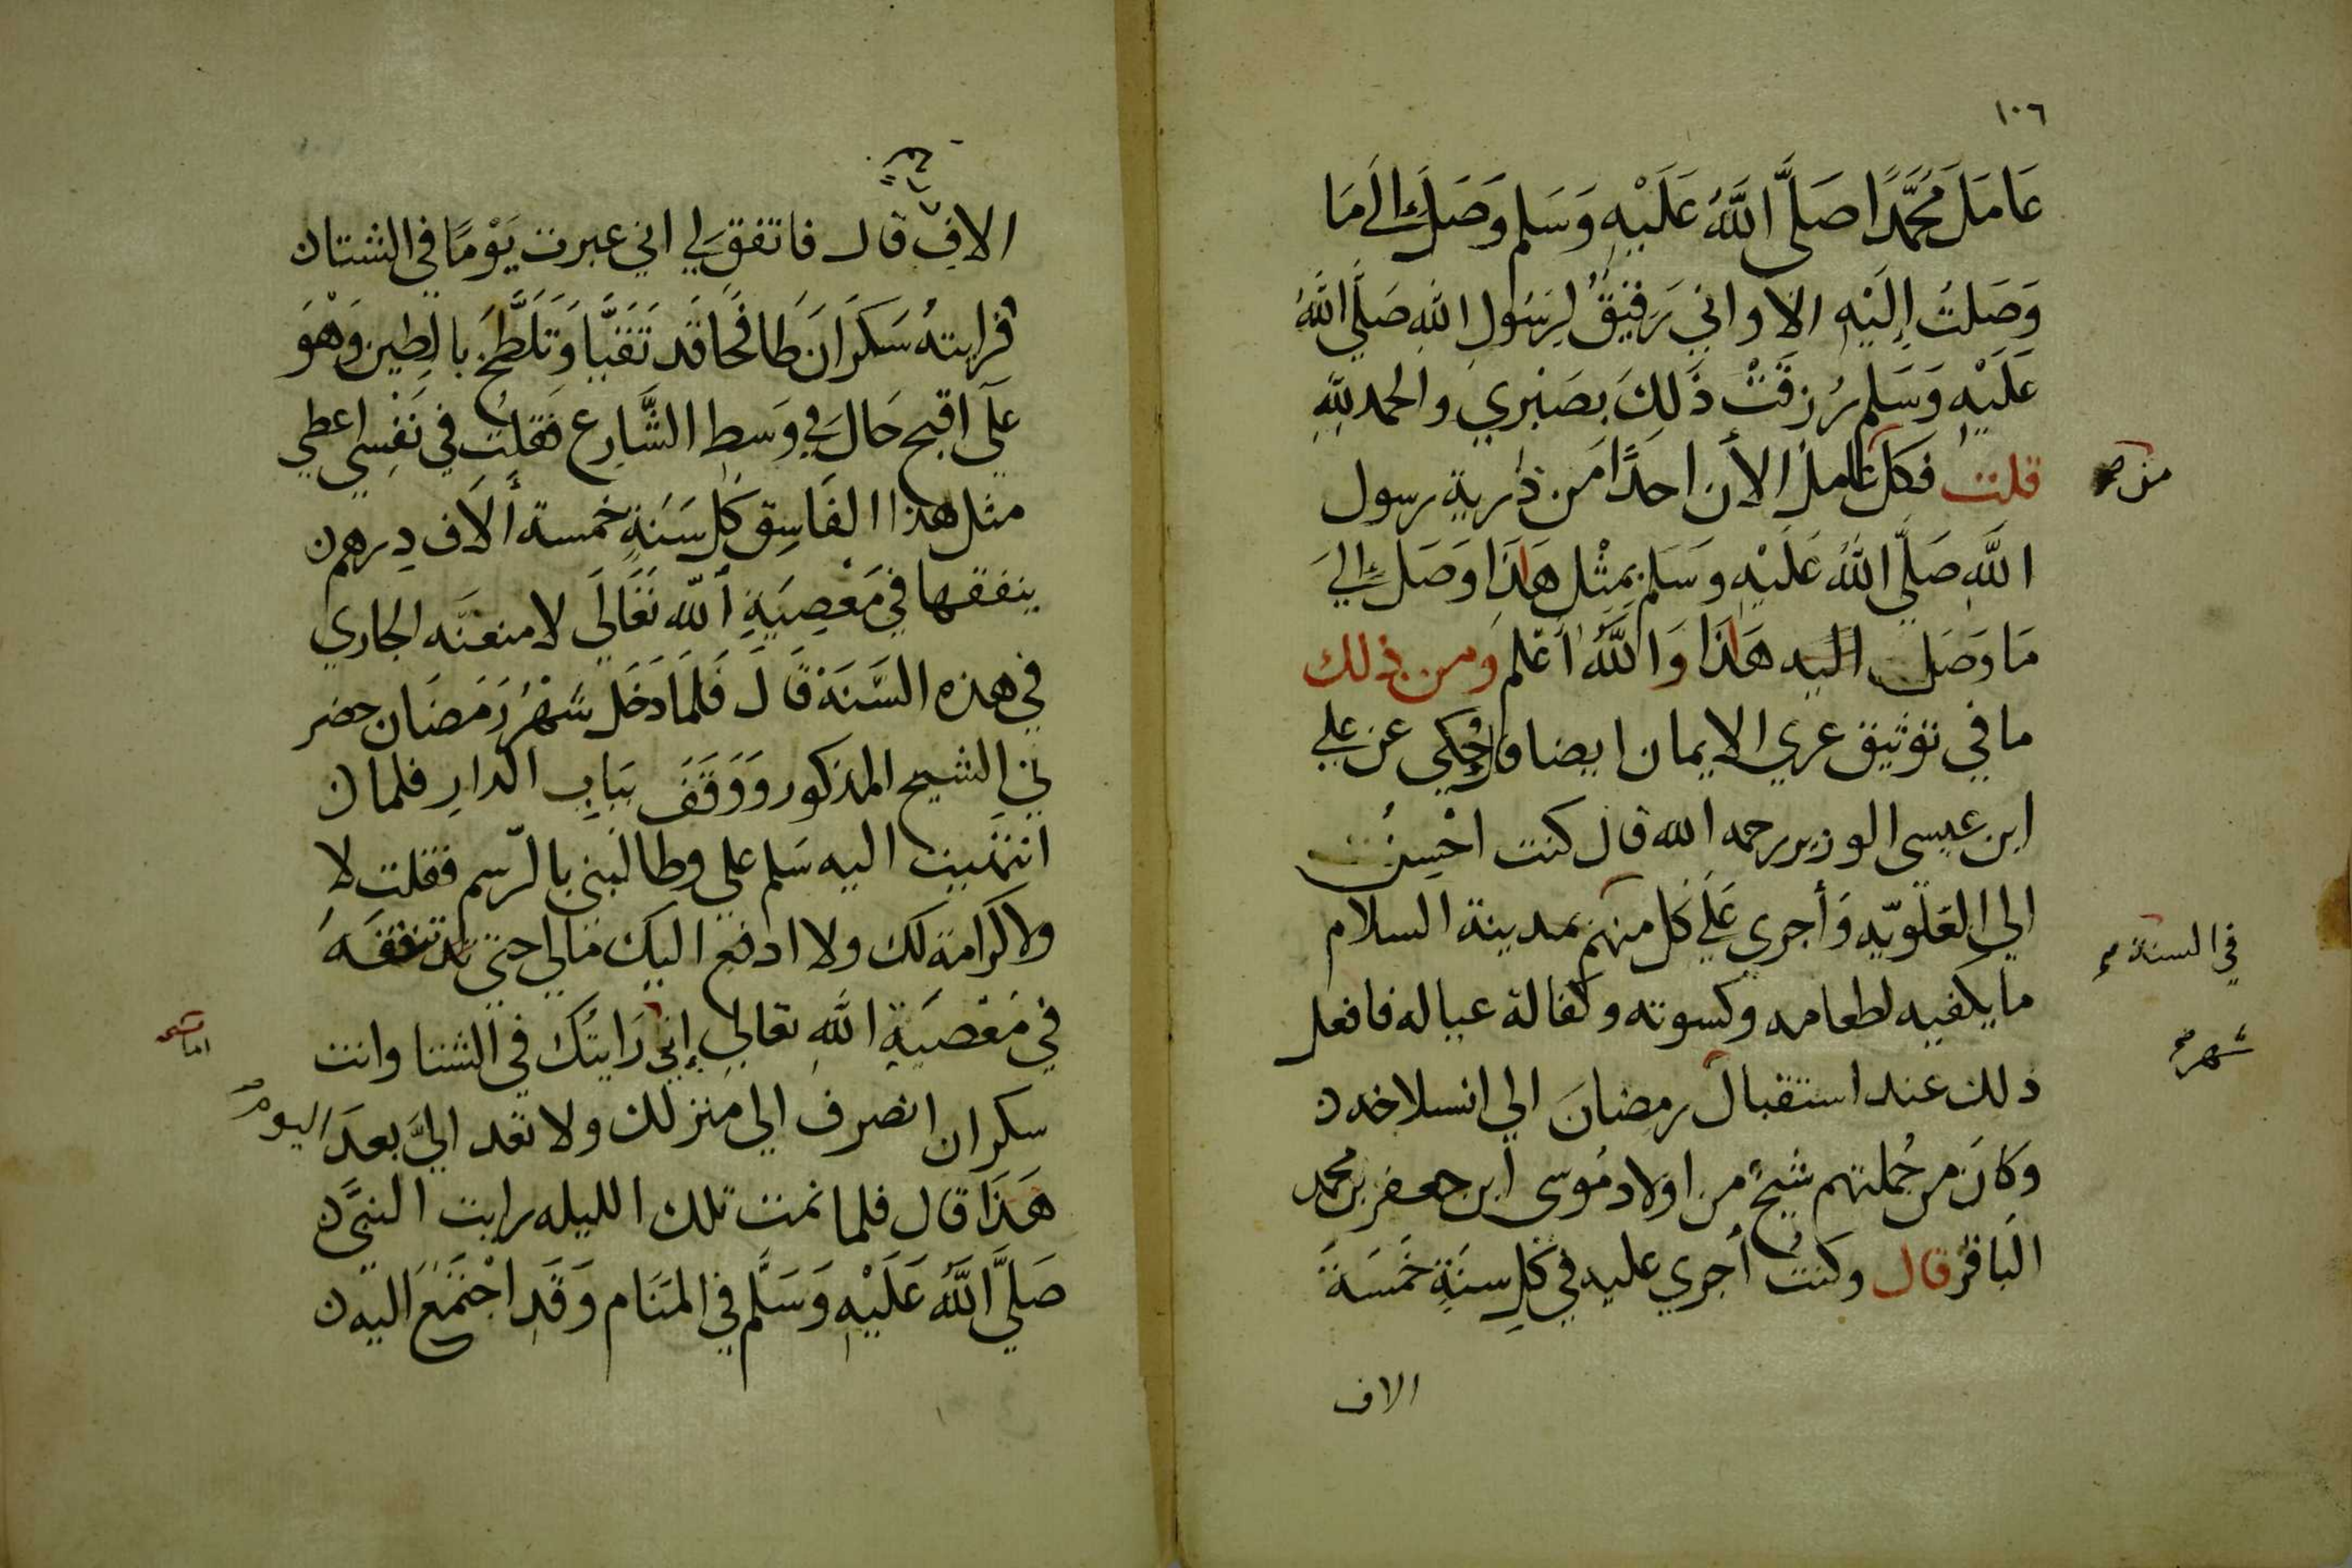 ١٠٦
عَامَلَ مُحَمَّدًا صَلَّى اللَّهُ عَلَيْهِ وَسَلم وَصَلَ إلَى مَا
وَصَلتُ إِلَيْهِ الا واني رَفيقٌ لِرَسُولِ اللهِ صَلَّى اللهُ
عَلَيْهِ وَسَلم رُزِقَتْ ذَلِكَ بصَبْرِي والحمد للهِ
قلت فكل عامل الأن احدًا من ذرية رسول
من صح
اللَّهِ صَلَّى اللَّهُ عَلَيْهِ وسَلم بمِثْل هَذَا وَصَلَ إلي
مَا وَصَل اليه هَذَا وَاللَّهُ اَعْلم ومن ذلك
ما في توثيق عري الايمان ايضا وحُكي عن علي
ابن عيسى الوزير رحمه الله قال كنت احْسِنُ
الي العَلَويّه وَأجري عَلَي كل منهم بمدينة السلام
في السنة صح
ما يكفيه لطعامه وكسوته وكفالة عياله فافعل
ذلك عند استقبال رمضانَ الي انسلاخه ن
شهر صح
وَكانَ من جُملتهم شيخٌ من اولاد مُوسى ابن جعفر بن محمد
البَاقر قال وكنتُ أجري عليه في كل سنَةٍ خَمَسَةَ
الاف
الاف قال فاتفق لي اني عبرت يَوْمًا في الشتا ن
فرايتهُ سَكرَانَ طَافحًا قَد تَقَيَّا وَتَلَطَّخَ بالطين وَهْوَ
عَلَى اقبح حَال في وَسطِ الشَّارِع فقلتُ في نَفْسي اعطي
مثل هذا الفَاسِق كل سَنَةٍ خمسة ألَاف دِرهم ن
ينفقها في مَعْصِيَةِ اللّه تَعَالَي لامنعنَّه الجاري
في هذه السَّنَة قَالَ فَلَمَا دَخَل شهْرُ رَمَضَان حضر
لي الشيخ المذكور وَوَقَفَ بَبَابِ الدارِ فلما ن
انتهيت اليه سَلم علي وطالبني بالرّسم فقلت لا
ولا كرامة لك ولا ادفع اليك مَالي حتي تنفقَهُ
في مَعْصَيَةِ اللَّهِ تعالي إنِّي رَايتُك في الشتا وانت
اما صح
سكران انصرف الي منزلك ولا تعد اليَّ بعدَ اليوم
هَذَا قال فلما نمت تلك الليله رايت النبيَّ ن
صَلَّى اللَّهُ عَلَيْهِ وَسَلَّم في المَنَام وَقَد اجْتَمَعَ اليه ن